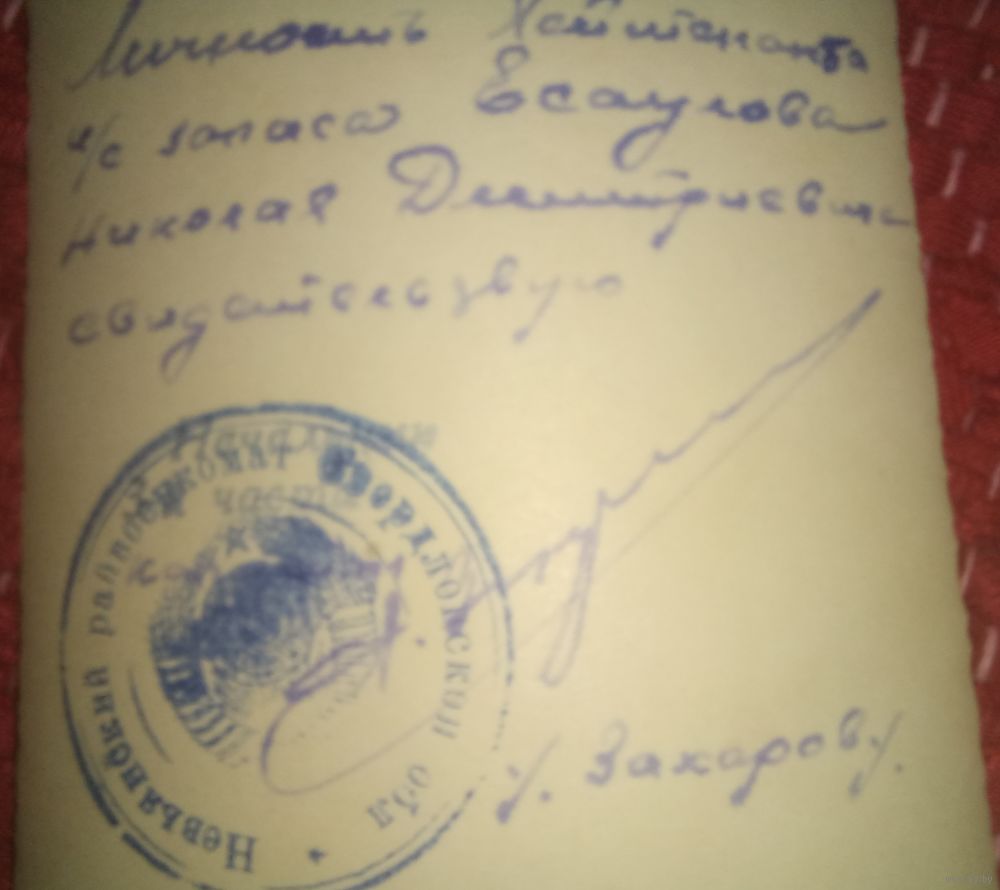 Личность Лейтенанта
а/с запаса Есаулова
Николая Дмитриевича
свидетельствую
Начальник
части
Невьянский райвоенкомат Свердловской обл
/. Захаров./